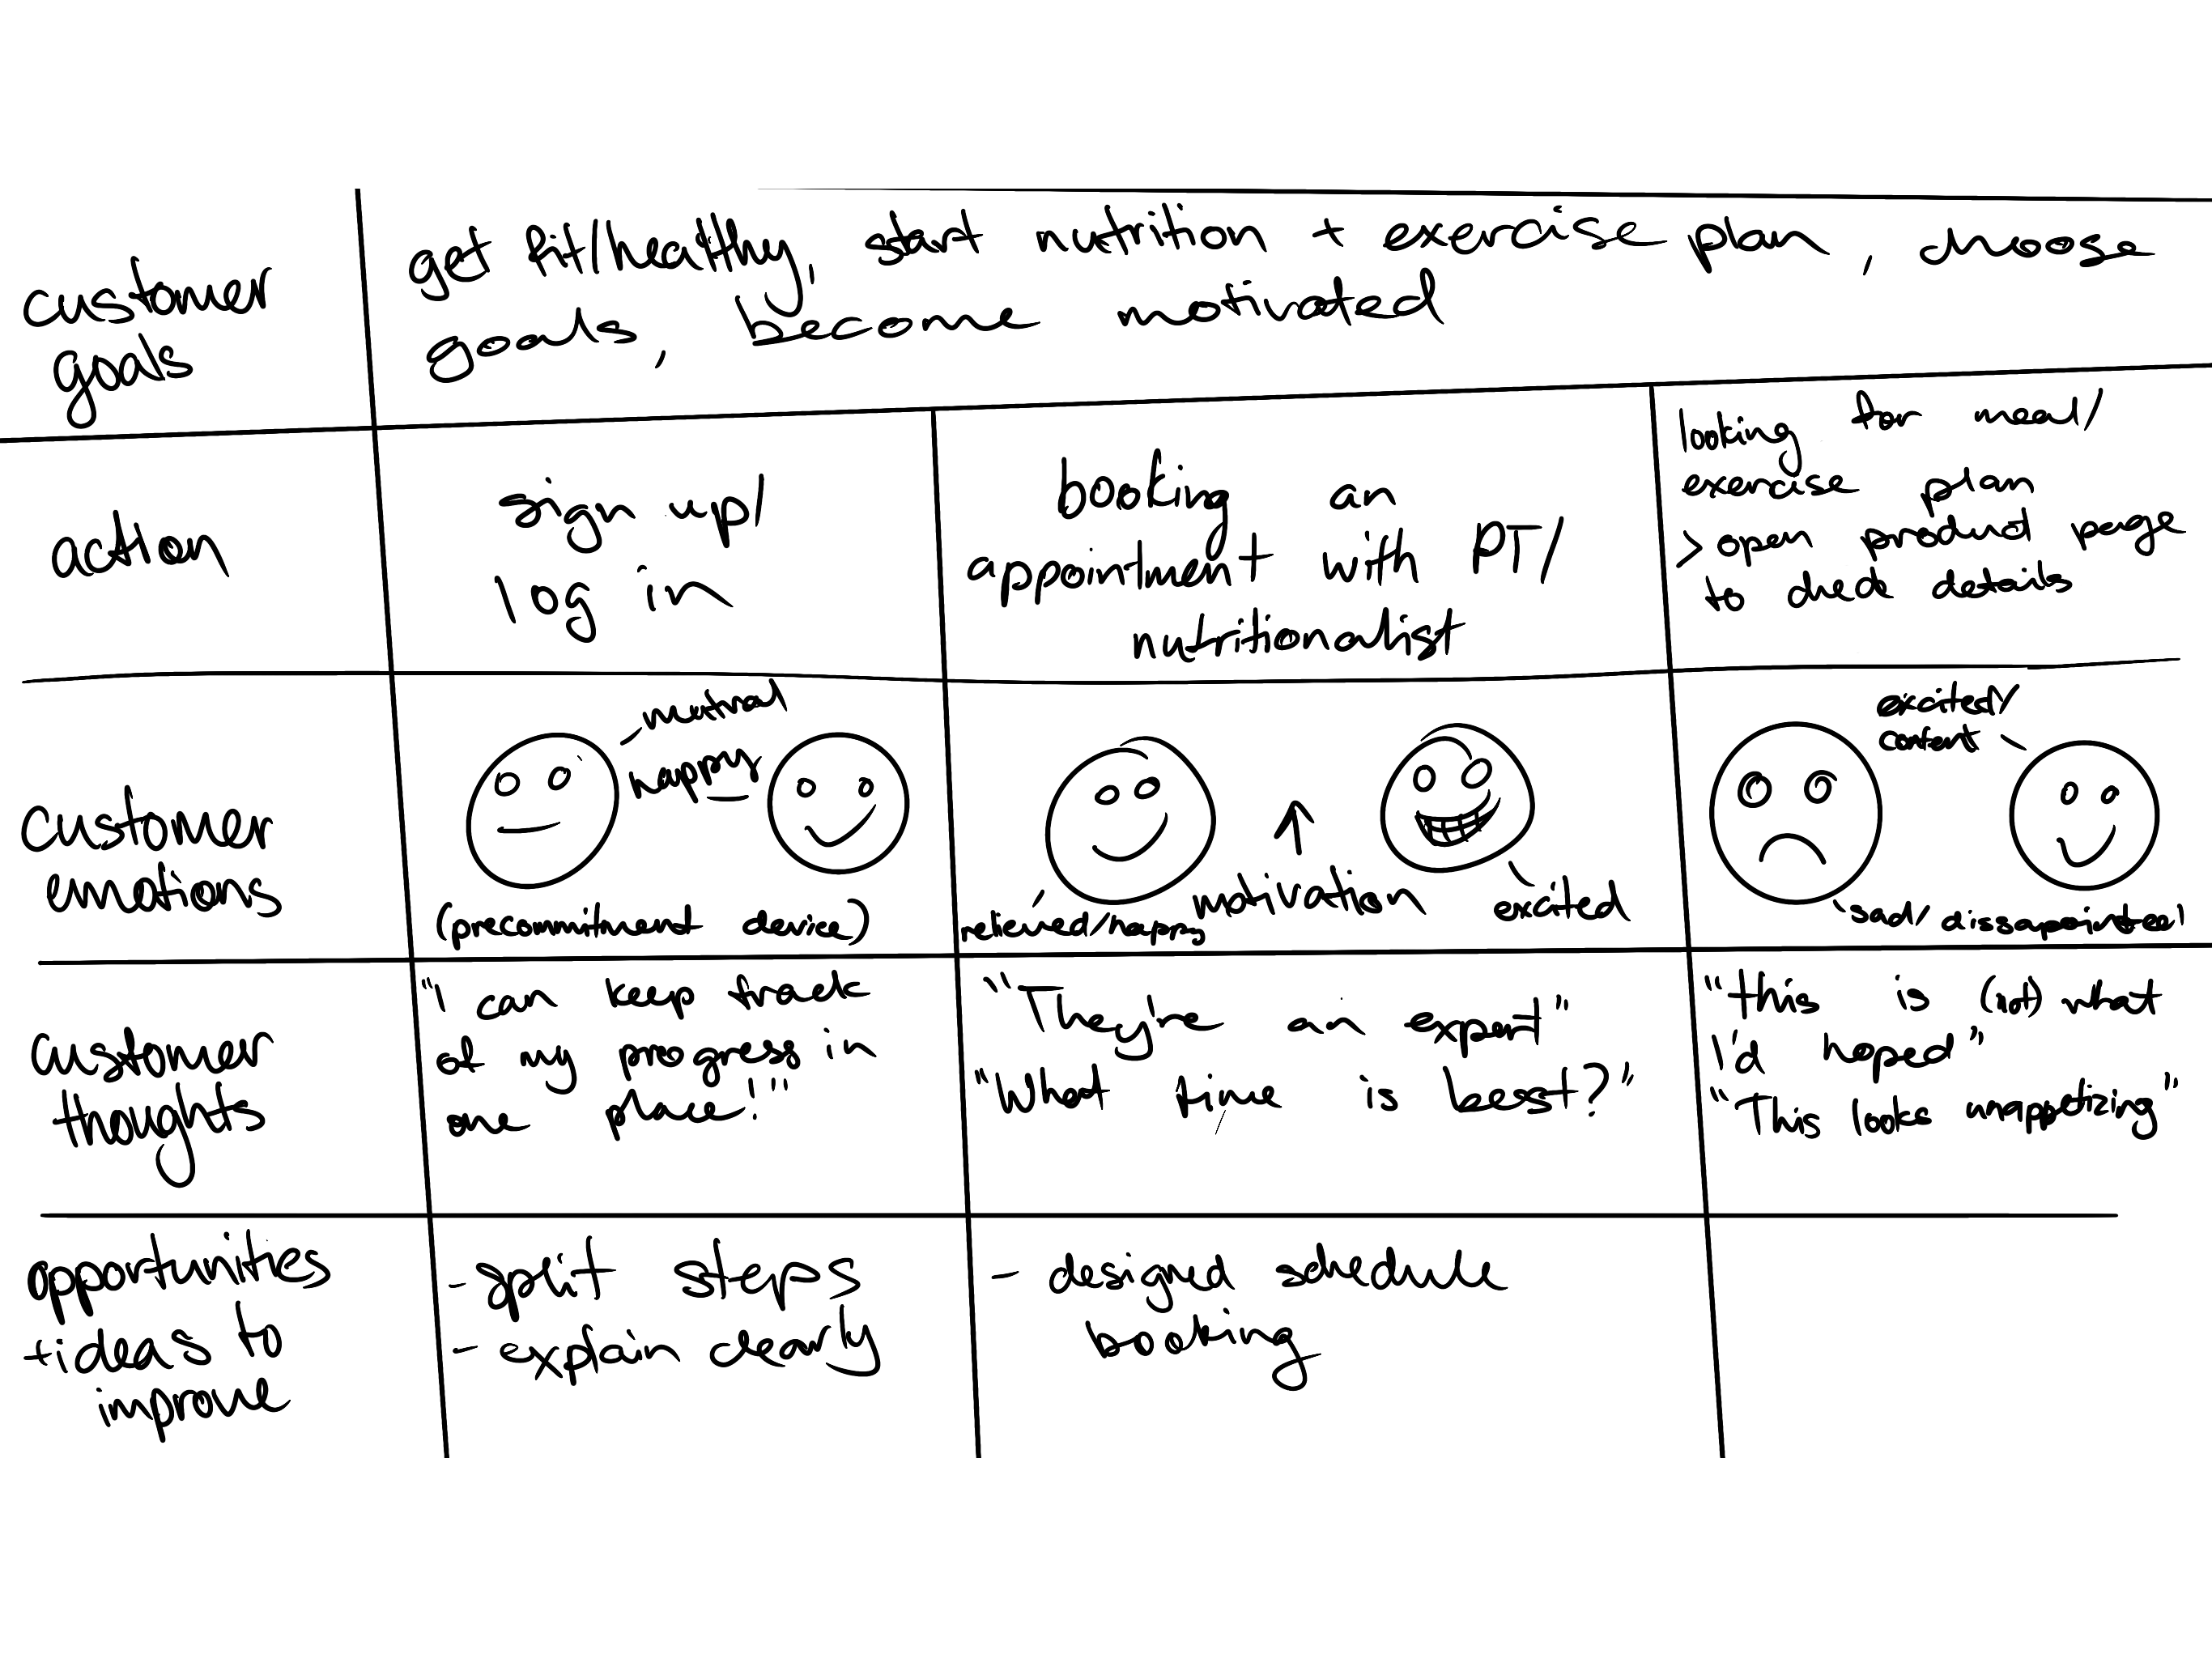 customer
goals
get fit/healthy, start nutrition + exercise plan, choose
goals, become motivated
action
sign up/
log in
booking an
appointment with PT/
nutritionalist
looking for meal/
exercise plan
> open product page
to check details
customer
emotions
neutral
happy
(precommitment device)
relieved/happy
↑
motivation
excited
excited/
content
sad/dissapointed
customer
thoughts
"I can keep track
of my progress in
one place!"
"They're an expert"
"What time is best?"
"this is (not) what
I'd hoped"
"This looks unappetizing"
opportunities
+ideas to
improve
- split steps
- explain clearly
- designed schedule
booking